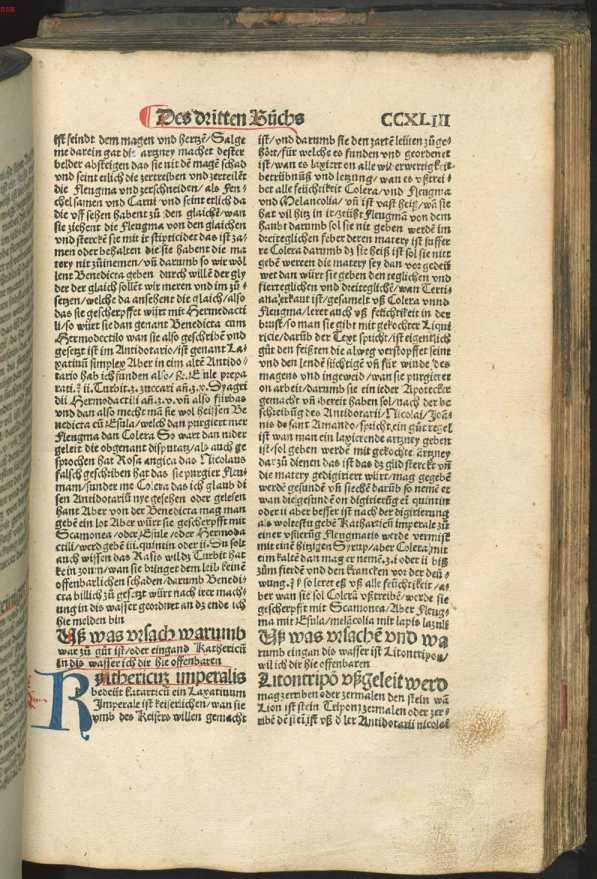 Des dritten Bůchs CCXLIII
ist feindt dem magen vnd hertzē/Salge
me darein gat die artzney machet dester
belder absteigen das sie nit dē magē schad
vnd seint etlich die zertreiben vnd zerteilēt
die flengma vnd zerschneiden/als Fen⸗
chel samen vnd Carui vnd seint etlich da
die vff sehen habent zů den glaichē/wan
sie ziehent die flengma von den glaichen
vnd sterckē sie mit ir stipticidet das ist za⸗
men oder behalten die sie habent die ma
tery nit zůinemen/vn̄ darumb so wir wöl
lent Benedicta geben durch willē der gly
der der glaich sollēt wir meren vnd im zů⸗
setzen/welche da ansehent die glaich/also
das sie gescherpffet würt mit Hermodacti
li/so würt sie dan genant Benedicta cum
Hermodectilo wan sie also geschribē vnd
gesetzt ist im Antidotario/ist genant La⸗
xatinū simplex Aber in eim altē Antido⸗
tario hab ich funden also/
dii Hermodactili vnd also fürbas
vnd dan also mecht man sie wol heissen Be
nedicta cū Esula/welch dan purgiert mer
flengma dan Colera So wart dan nider
geleit die obgenant disputatz/als auch ge
sprochen hat Rosa angica das Nicolaus
falsch geschriben hat das sie purgier flen⸗
mam/sunder me Colera das ich glaub di
sen Antidotariū nye gesehen oder gelesen
hant Aber von der Benedicta mag man
gebē ein lot Aber würt sie gescherpfft mit
Scamonea/oder Esule/oder Hermoda
ctili/werd gebē iii.quintin oder ii. Du solt
auch wissen das Rasis wildz Turbit hat
kein zorn/wan sie bringet dem leib keinē
offenbarlichen schaden/darumb Benedi⸗
cta billich zů gesetzt würt nach irer mach⸗
ung in dis wasser geordnet an dz ende ich
hie melden bin
Uß was vrsach warumb
war zů gůt ist/oder eingand Kathericū
in dis wasser ich dir hie offenbaren
Kathericuz imperalis
bedeüt katarticū ein Laxatiuum
Imperale ist keiserlichen/wan sie
vmb des Keisers willen gemacht
ist/vnd darumb sie den zartē leüten zůge⸗
hört/für welchs es funden vnd geordenet
ist/wan es laxirt on alle wil erwertigkeit
betrübnüß vnd letzung/wan es vßtrei⸗
bet alle feüchtikeit Colera/vnd flengma
vnd Melancolia/vn̄ ist vast heiß/wā sie
hat vil hitz in ir/zeüßt flengmā von dem
haubt darumb sol sie nit geben werdē im
dreiteglichen feber deren matery ist suffer
re Colera darumb dz sie heiß ist sol sie nitt
gebē werren die matery sey dan vor gedeü
wet dan würt sie geben den teglichen vnd
fierteglichen vnd dreiteglichē/wan Terti⸗
ana erkaut ist/gesamelt vß Colera vnnd
flengma/leret auch vß feüchtikeit in der
brust/so man sie gibt mit gekochter Liqui
ricie/darüb der Text spricht/ist eigentlich
gůt den feißten die alweg verstopffet seint
vnd den lendē süchtigē vn̄ für winde des
magens vnd ingeweid/wan sie purgieret
on arbeit/darumb sie ein ieder Apotecker
gemacht vn̄ bereit haben sol/nach der be
schreibūg des Antidotarii/Nicolai/Joā⸗
nis de sant Amando/spricht/ein gůt regel
ist wan man ein laxierende artzney geben
ist/sol geben werdē mit gekochte artzney
dar zů dienen das ist das dz glid sterckt vn̄
die matery gedigiriert würt/mag gegebē
werdē gesundē vn̄ siechē darūb so nemē er
wan die gesundē on digitierūg ei quintin
oder ii aber besser ist nach der digirierung
als woltestu gebē Katharticū imperale zů
einer vßierūg flengmatis werde vermist
mit einē hitzigen Syrup/aber Colera mit
eim kaltē dan mag er nemē.ʒ.i oder ii biß
zům fierdē vnd den krancken vor der deü⸗
wung.ʒ ß so leret eß vß alle feüchtikeit/a⸗
ber wan sie sol Colerā vßtreibē/werde sie
gescherpfft mit Scamonea/Aber flengs
ma mit Esula/melācolia mit lapis lazuli
Uß was vrsachē vnd wa
rumb eingan dis wasser ist Litontripon/
wil ich dir hie offenbaren
Litontripō vßgeleit werd
mag zerriben oder zermalen den stein wā
Lion ist stein Tripon zermalen oder zer⸗
ribē dē stein ist vß d ler Antidotarii nicolai